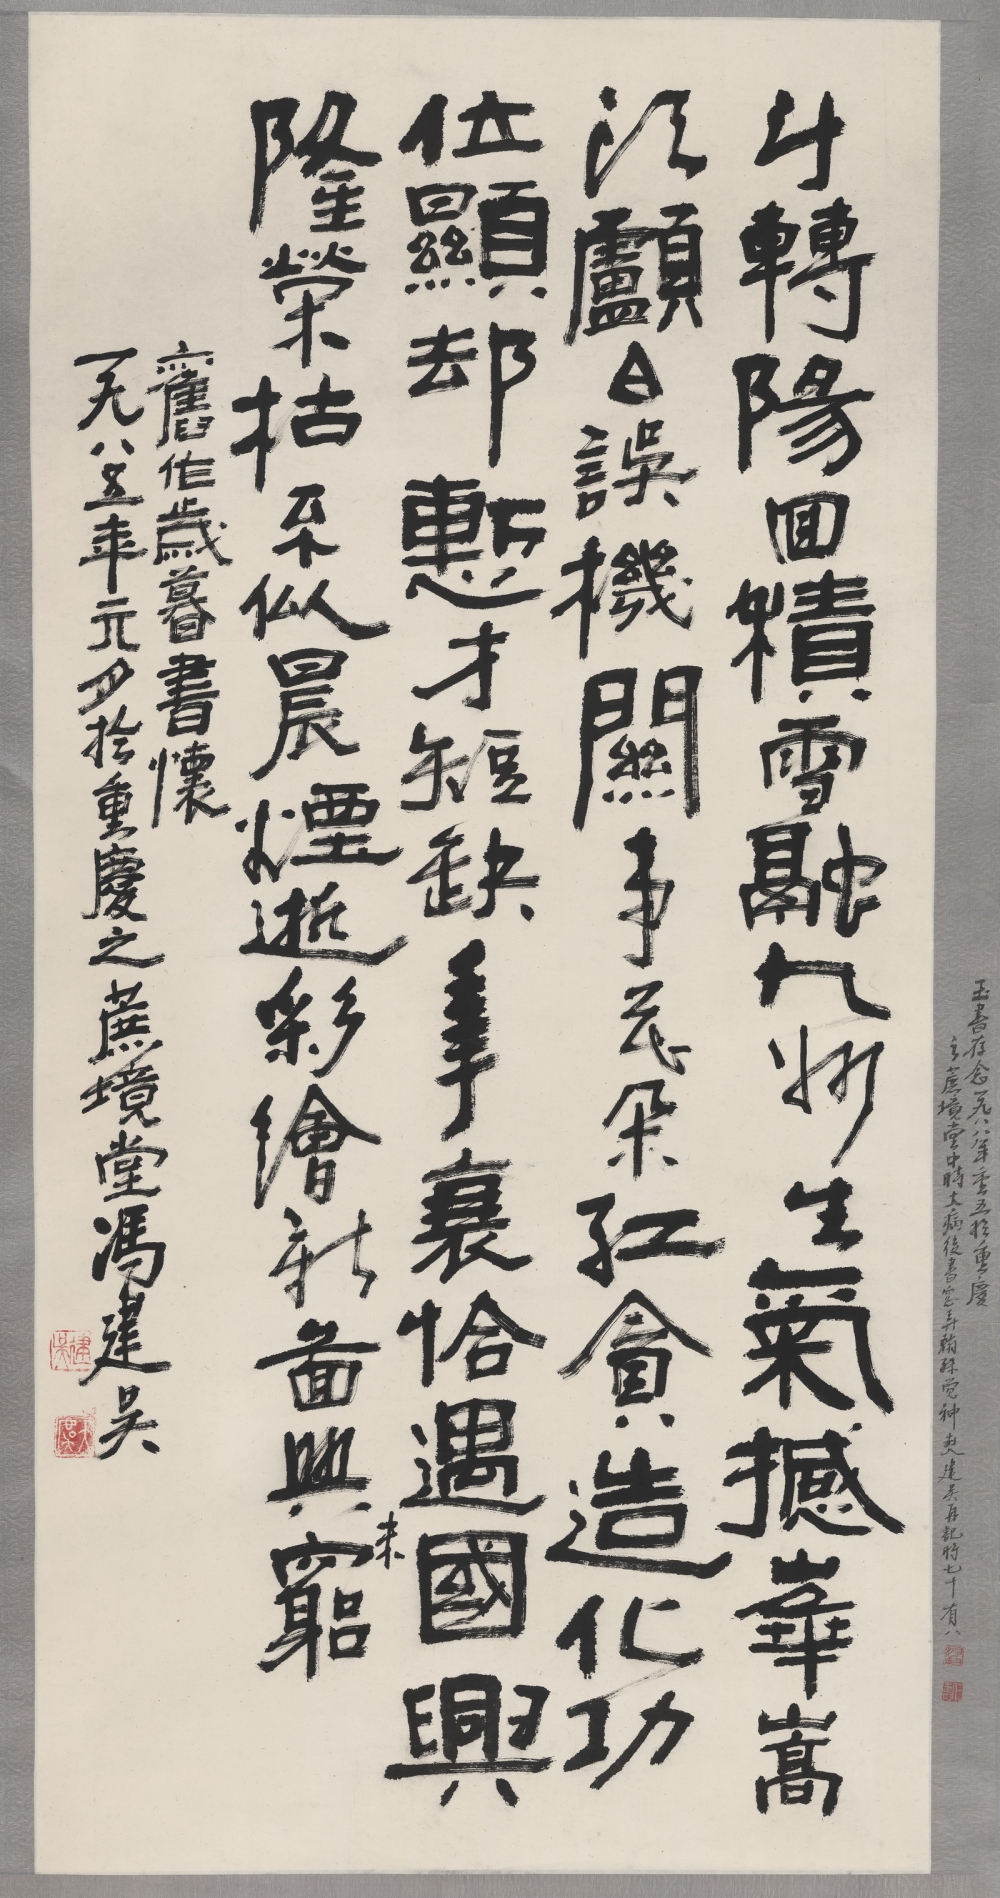 斗轉陽囬積雪融九州生氣撼崋嵩
頭顱白誤機關事花朵紅貪造化功
位顯却慙才短缺年衰恰遇國興
隆榮枯不似晨煙逝彩繪新啚興未窮
舊作歲暮書懷
一九八五年元月於重慶之蔗境堂馮建吳
建吳
玉書存念一九八八年重五於重慶
之蔗境堂中時大病後書室弄翰殊覺神爽建吳再記時七十有八